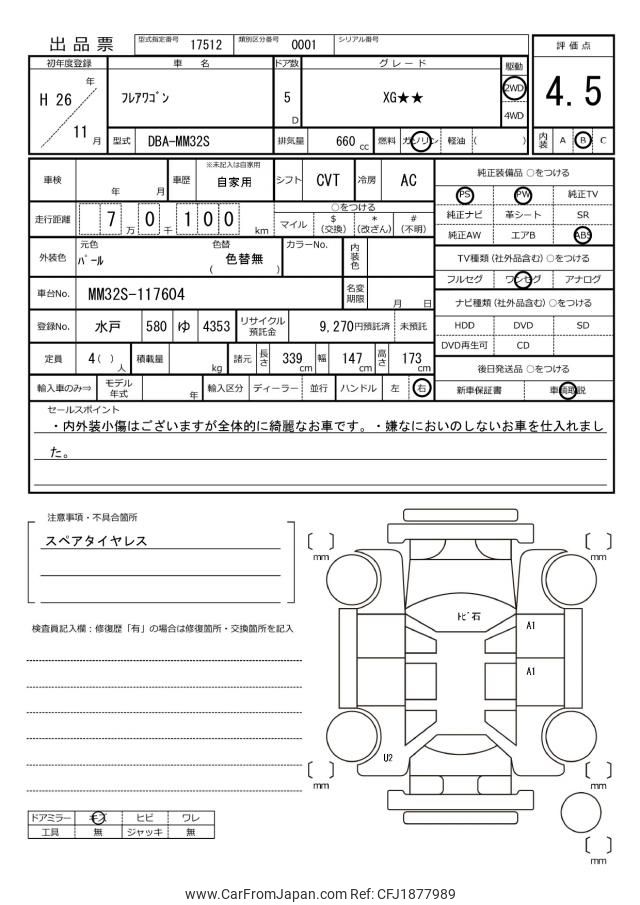 出品票 型式指定番号 17512 類別区分番号 0001 シリアル番号
評価点
4.5
内装 A B C
初年度登録 車名 ドア数 グレード 駆動
H 26 年 11 月
フレアワゴン 5 D XG★★ 2WD 4WD
型式 DBA-MM32S 排気量 660 cc 燃料 ガソリン 軽油 ( )
車検 年 月 車歴 ※未記入は自家用 自家用 シフト CVT 冷房 AC
走行距離 7 万 0 千 1 0 0 km
○をつける
マイル $(交換) *(改ざん) #(不明)
外装色 元色 パール 色替 ( 色替無 ) カラーNo. 内装色
車台No. MM32S-117604 名変期限 月 日
登録No. 水戸 580 ゆ 4353 リサイクル預託金 9,270円預託済 未預託
定員 4 ( ) 人 積載量 kg 諸元 長さ 339 cm 幅 147 cm 高さ 173 cm
輸入車のみ⇒ モデル年式 年 輸入区分 ディーラー 並行 ハンドル 左 右
純正装備品 ○をつける
PS PW 純正TV
純正ナビ 革シート SR
純正AW エアB ABS
TV種類 (社外品含む) ○をつける
フルセグ ワンセグ アナログ
ナビ種類 (社外品含む) ○をつける
HDD DVD SD
DVD再生可 CD
後日発送品 ○をつける
新車保証書 車輌取説
セールスポイント
・内外装小傷はございますが全体的に綺麗なお車です。・嫌なにおいのしないお車を仕入れまし
た。
注意事項・不具合箇所
スペアタイヤレス
検査員記入欄：修復歴「有」の場合は修復箇所・交換箇所を記入
ドアミラー キズ ヒビ ワレ
工具 無 ジャッキ 無
mm
mm
トビ石
A1
A1
U2
mm
mm
mm
www.CarFromJapan.com Ref: CFJ1877989